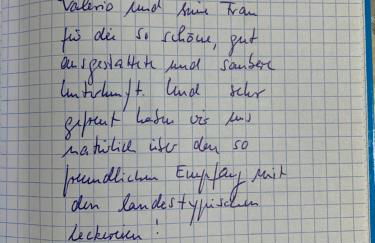 Valerio und seine Frau
für die so schöne, gut
ausgestattete und saubere
Unterkunft. Und sehr
gefreut haben wir uns
natürlich über den so
freundlichen Empfang mit
den landestypischen
Leckereien!